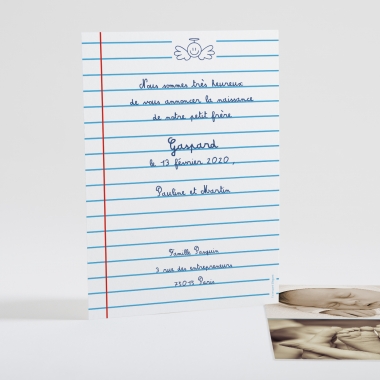 Nous sommes très heureux
de vous annoncer la naissance
de notre petit frère
Gaspard
le 13 février 2020,
Pauline et Martin
Famille Parquin
3 rue des entrepreneurs
75015 Paris